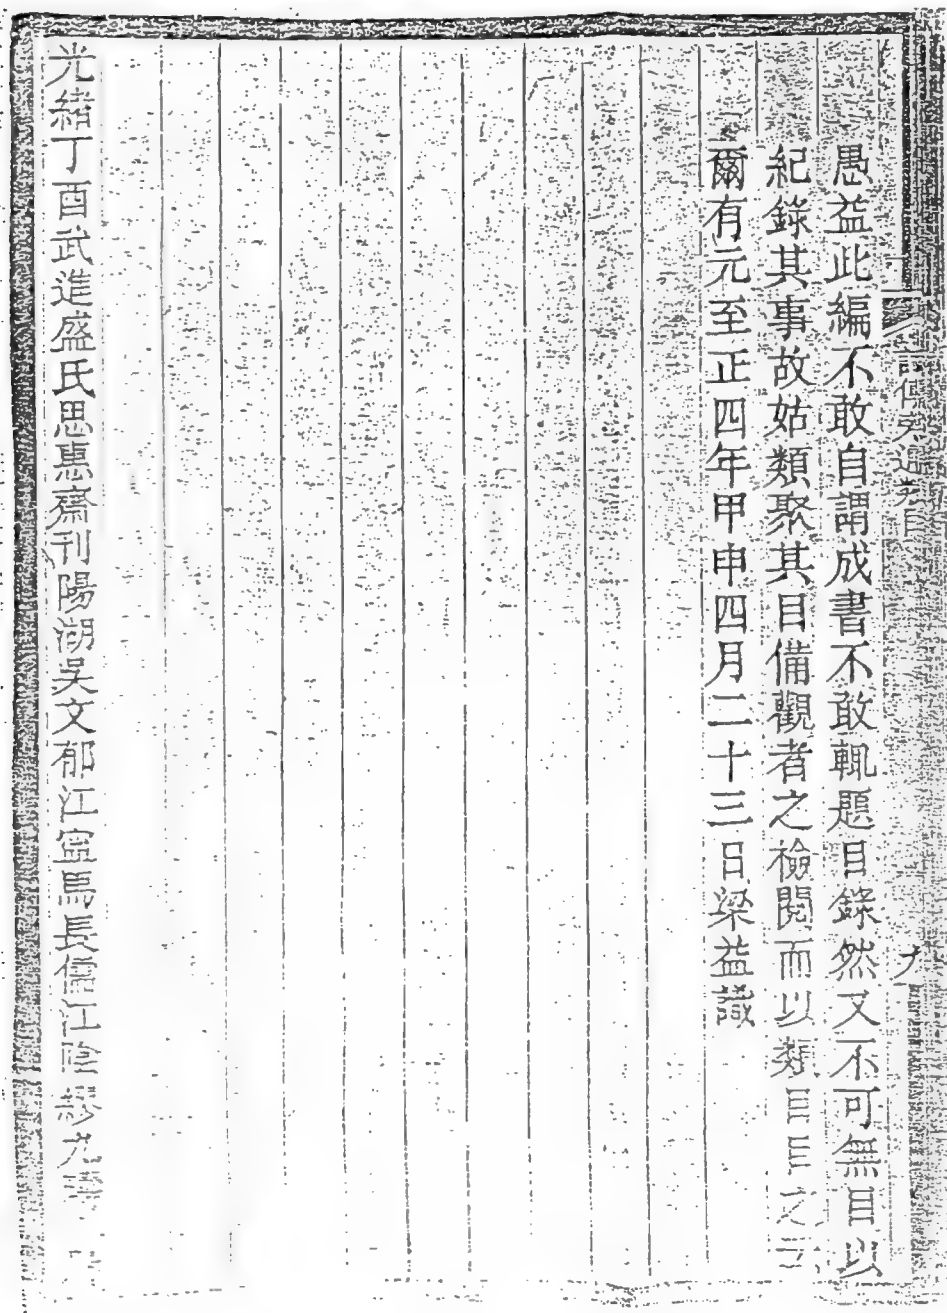 愚益此編不敢自謂成書不敢輒題目錄然又不可無目以
紀錄其事故姑類聚其目備觀者之檢閱而以類目目之云
爾有元至正四年甲申四月二十三日梁益識
光緒丁酉武進盛氏思惠齋刊陽湖吳文郁江寧馬長儒江陰繆九疇